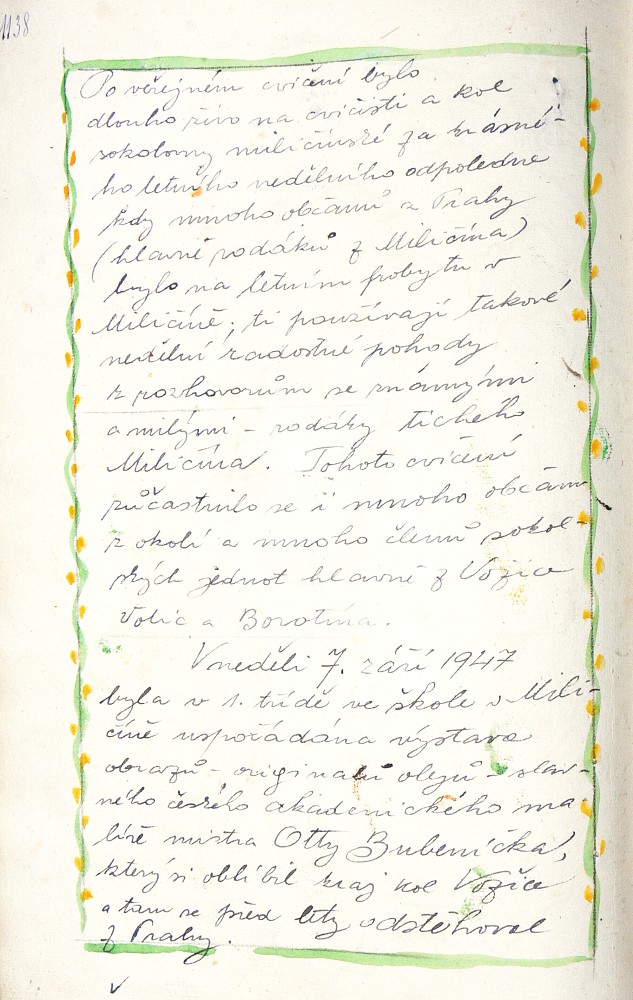 1138
Po veřejném cvičení bylo
dlouho živo na cvičišti a kol
sokolovny miličínské za krásné-
ho letního nedělního odpoledne
kdy mnoho občanů z Prahy
(hlavně rodáků z Miličína)
bylo na letním pobytu v
Miličíně; ti používají takové
nedělní radostné pohody
k rozhovorům se známými
a milými - rodáky tichého
Miličína. Tohoto cvičení
zúčastnilo se i mnoho občanů
z okolí a mnoho členů sokol-
ských jednot hlavně z Vožice
Votic a Borotína.
V neděli 7. září 1947
byla v 1. třídě ve škole v Mili-
číně uspořádána výstava
obrazů - originalů olejů - slav-
ného českého akademického ma-
líře mistra Otty Bubeníčka,
který si oblíbil kraj kol Vožice
a tam se před lety odstěhoval
z Prahy.